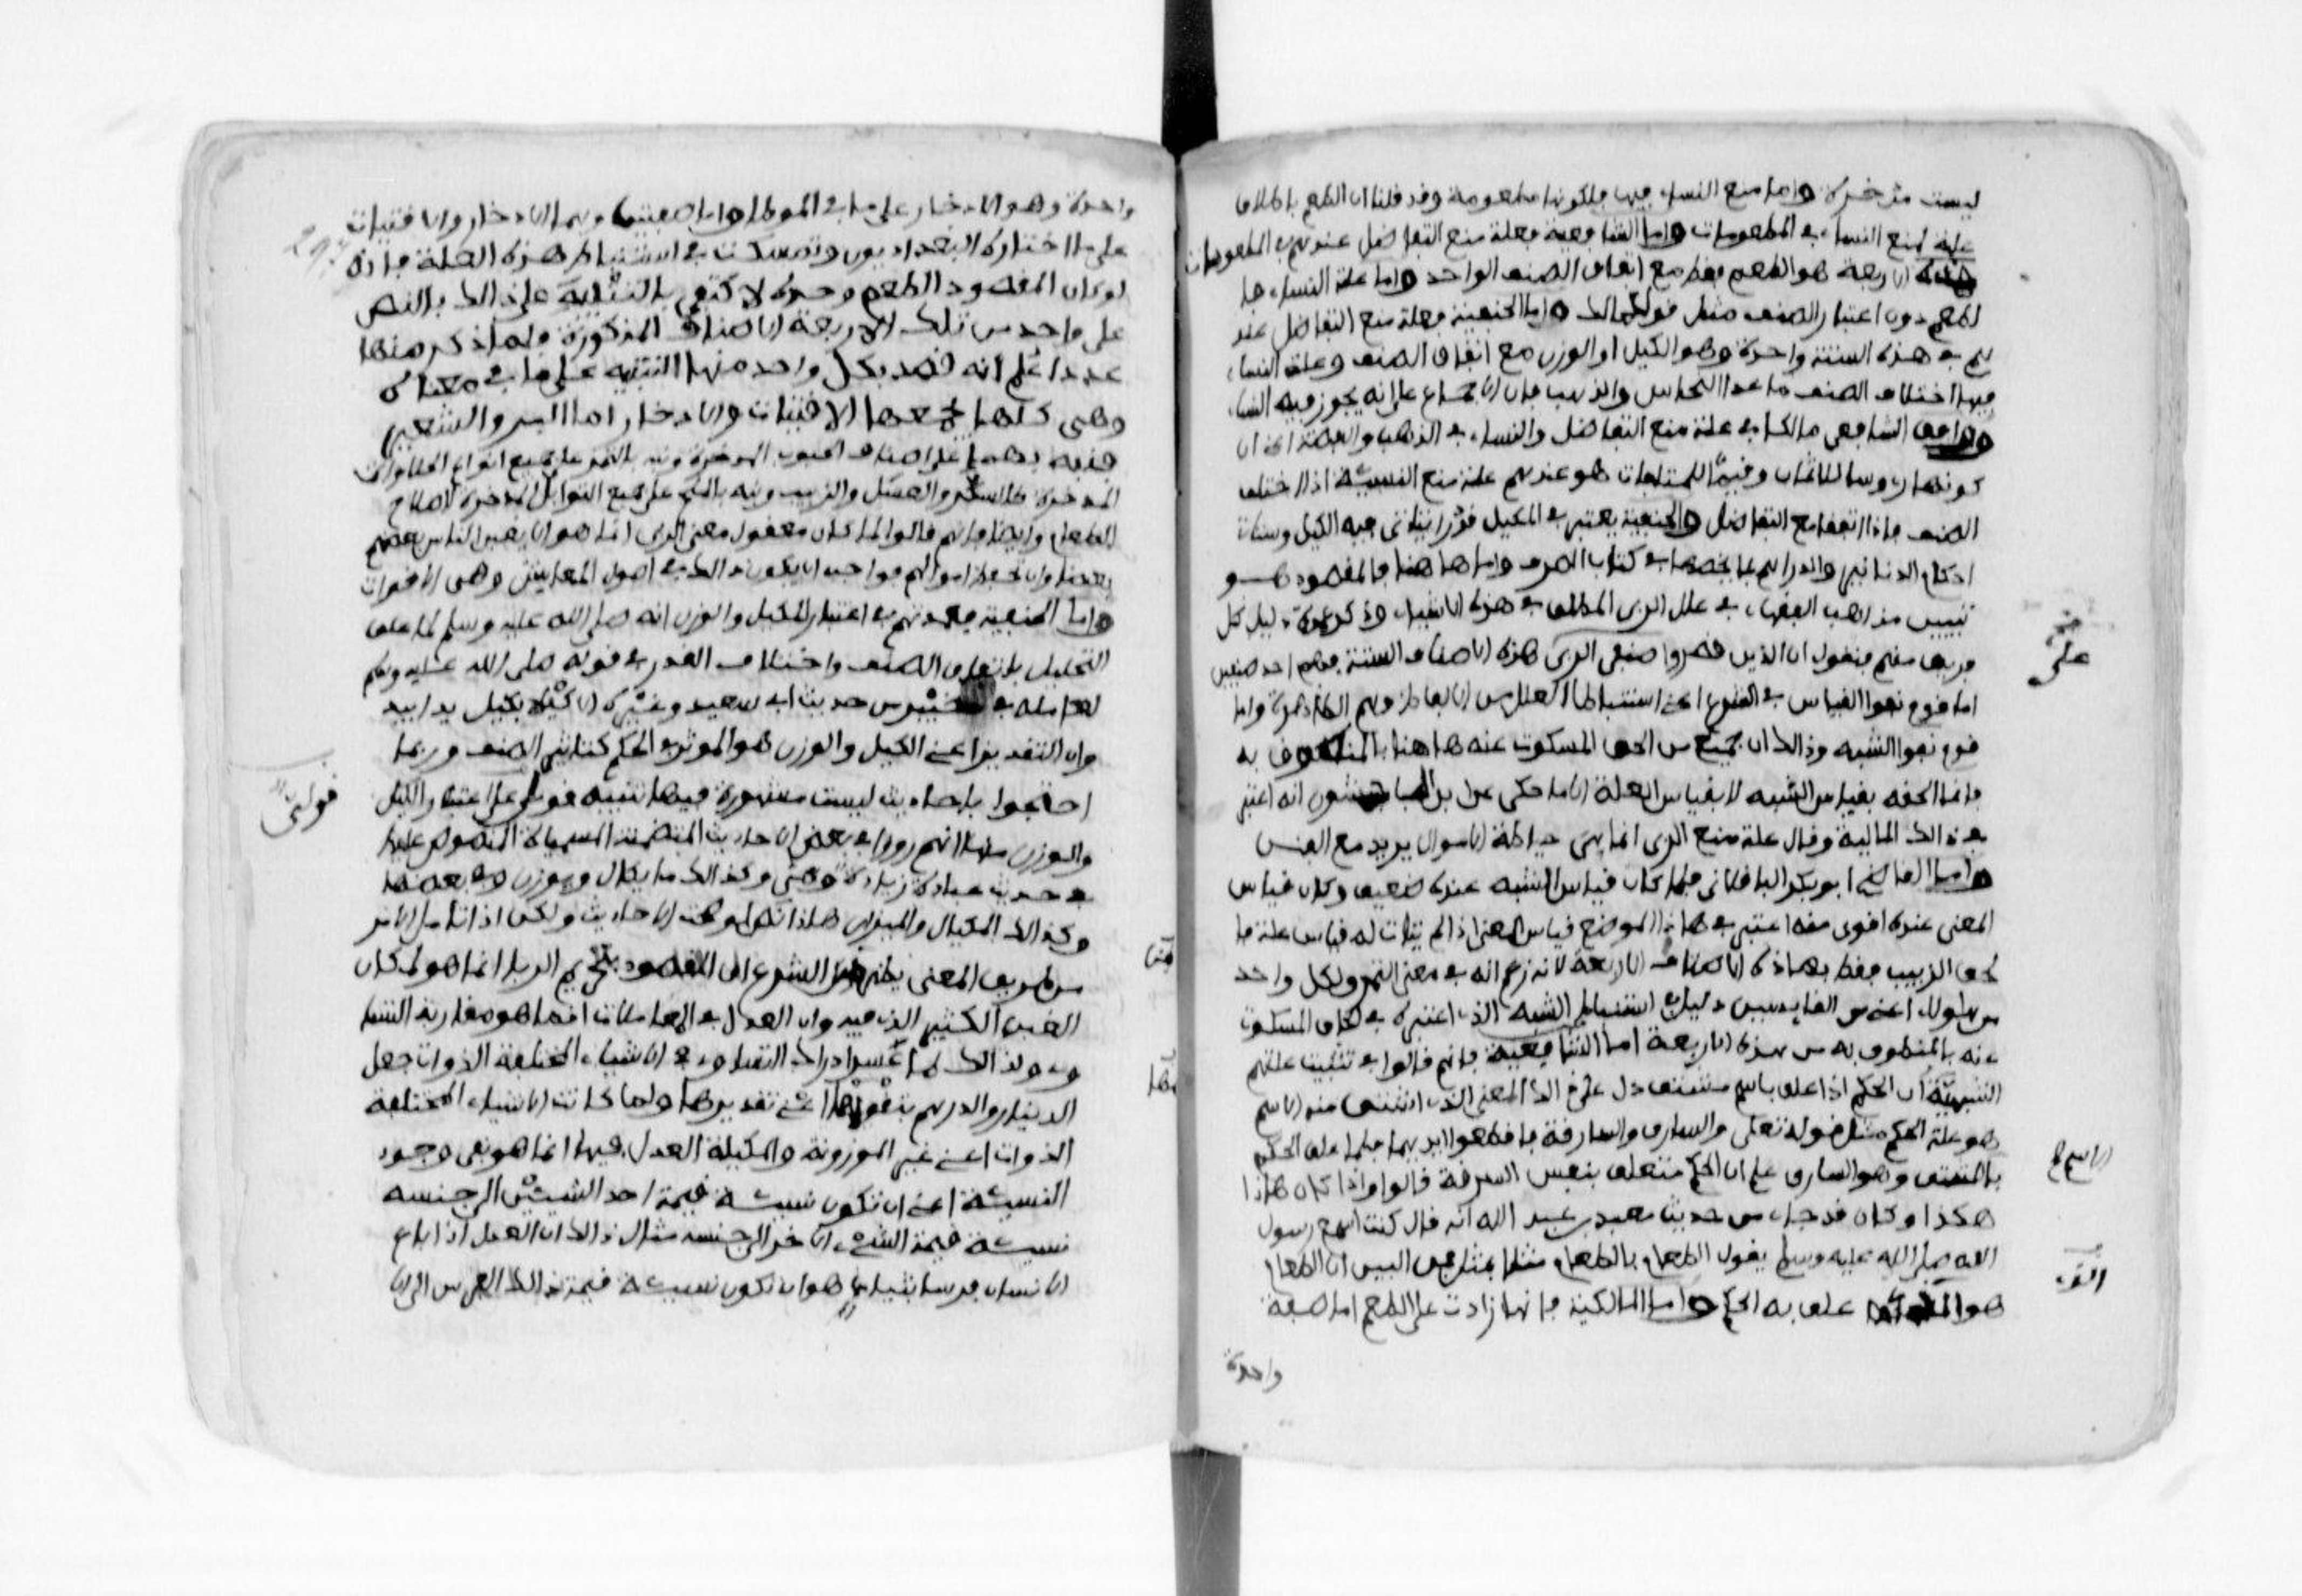 ليست مدخرة واما منع النساء فيها فلكونها مطعومة وقد قلنا ان الطعم باطلاق
علة لمنع النساء في المطعومات واما الشافعية فعلة منع التفاضل عندهم في المطعومات
هذه الاربعة هو الطعم فقط مع اتفاق الصنف الواحد واما علة النساء فا
لطعم دون اعتبار الصنف مثل قول مالك واما الحنفية فعلة منع التفاضل عند
هم في هذه الستة واحدة وهو الكيل او الوزن مع اتفاق الصنف وعلة النساء
فيها اختلاف الصنف ما عدا النحاس والذهب فان الاجماع على انه يجوز فيه النساء
ووافق الشافعي مالكا في علة منع التفاضل والنساء في الذهب والفضة اعني ان
كونها رءوسا للاثمان وقيما للمتلفات هو عندهم علة منع النسيئة اذا اختلف
الصنف فاذا اتفقا منع التفاضل والحنفية يعتبر في المكيل قدرا يتاتى فيه الكيل وسياتي
احكام الدنانير والدراهم بما يخصها في كتاب الصرف واما هاهنا فالمقصود هو
تبيين مذاهب الفقهاء في علل الربى المطلق في هذه الاشياء وذكر عمدة دليل كل
فريق منهم فنقول ان الذين قصروا صنفي الربى على هذه الاصناف الستة فهم احد صنفين
اما قوم نفوا القياس في الشرع اعني استنباط العلل من الالفاظ وهم الظاهرية واما
قوم نفوا الشبه وذالك ان جميع من الحق المسكوت عنه هاهنا بالمنطوق به
فانما الحقه بقياس الشبه لا بقياس العلة الا ما حكي عن ابن الماجشون انه اعتبر
في ذالك المالية وقال علة منع الربى انما هي حياطة الاموال يريد منع العين
واما القاضي ابو بكر الباقلاني فلما كان قياس الشبه عنده ضعيف وكان قياس
المعنى عنده اقوى منه اعتبر في هاذا الموضع قياس المعنى اذ لم يتات له قياس علة فا
لحق الزبيب فقط بهاذه الاصناف الاربعة لانه زعم انه في معنى التمر ولكل واحد
من هاولاء اعني من القايسين دليل في استنباط الشبه الذي اعتبره في الحاق المسكوت
عنه بالمنطوق به من هذه الاربعة اما الشافعية فانهم قالوا في تثبيت علتهم
الشبهية ان الحكم اذا علق باسم مشتق دل على ذالك المعنى الذي اشتق منه الاسم
هو علة الحكم مثل قوله تعلى والسارق والسارقة فاقطعوا ايديهما فلما علق الحكم
بالاسم المشتق وهو السارق علم ان الحكم متعلق بنفس السرقة قالوا واذا كان هاذا
هكذا وكان قد جاء من حديث معبد بن عبد الله انه قال كنت اسمع رسول
الله صلى الله عليه وسلم يقول الطعام بالطعام مثلا بمثل فمن البين ان الطعام
هو الذي علق به الحكم واما المالكية فانها زادت على الطعم اما صفة
واحدة
على
الاسم
الذي
واحدة وهو الادخار على ما في الموطا واما صفتين وهما الادخار والاقتيات
على ما اختاره البغداديون وتمسكت في استنباط هذه العلة بانه
لو كان المقصود الطعم وحده لاكتفى بالتنبيه على ذالك بالنص
على واحد من تلك الاربعة الاصناف المذكورة فلما ذكر منها
عددا علم انه قصد بكل واحد منها التنبيه على ما في معناه
وهي كلها يجمعها الاقتيات والادخار اما البر والشعير
فنبه بهما على اصناف الحبوب المدخرة ونبه بالتمر على جميع انواع الحلاوات
المدخرة كالسكر والعسل والزبيب ونبه بالملح على جميع التوابل المدخرة لاصلاح
الطعام وايضا فانهم قالوا لما كان معقول معنى الربى انما هو الا يغبن الناس بعضهم
بعضا وان تحفظ اموالهم فواجب ان يكون ذالك في اصول المعايش وهي الاقوات
واما الحنفية فعمدتهم في اعتبار المكيل والوزن انه صلى الله عليه وسلم لما علق
التحليل باتفاق الصنف واختلاف القدر في قوله صلى الله عليه وسلم
لعامله في خيبر من حديث ابي سعيد وغيره الا كيلا بكيل يدا بيد
وان التقدير اعني الكيل والوزن هو الموثر في الحكم كتاثير الصنف وربما
احتجوا باحاديث ليست مشهورة فيها تنبيه قوي على اعتبار الكيل
والوزن منها انهم رووا في بعض الاحاديث المتضمنة المسميات المنصوص عليها
في حديث عبادة زيادة وهي وكذالك ما يكال ويوزن وفي بعضها
وكذالك المكيال والميزان هاذا نص لو صحت الاحاديث ولكن اذا تامل الامر
من طريق المعنى يظهر من الشرع ان المقصود بتحريم الربا انما هو لمكان
الغبن الكثير الذي فيه وان العدل في المعاملات انما هو مقاربة التسا
وي ولذالك لما عسر ادراك التساوي في الاشياء المختلفة الذوات جعل
الدينار والدرهم لتقويمها اعني تقديرها ولما كانت الاشياء المختلفة
الذوات اعني غير الموزونة والمكيلة العدل فيها انما هو في وجود
النسبة اعني ان تكون نسبة قيمة احد الشيئين الى جنسه
نسبة قيمة الشيء الاخر الى جنسه مثال ذالك ان العدل اذا باع
الانسان فرسا بثياب هو ان تكون نسبة قيمة ذالك الفرس الى الا
قوي